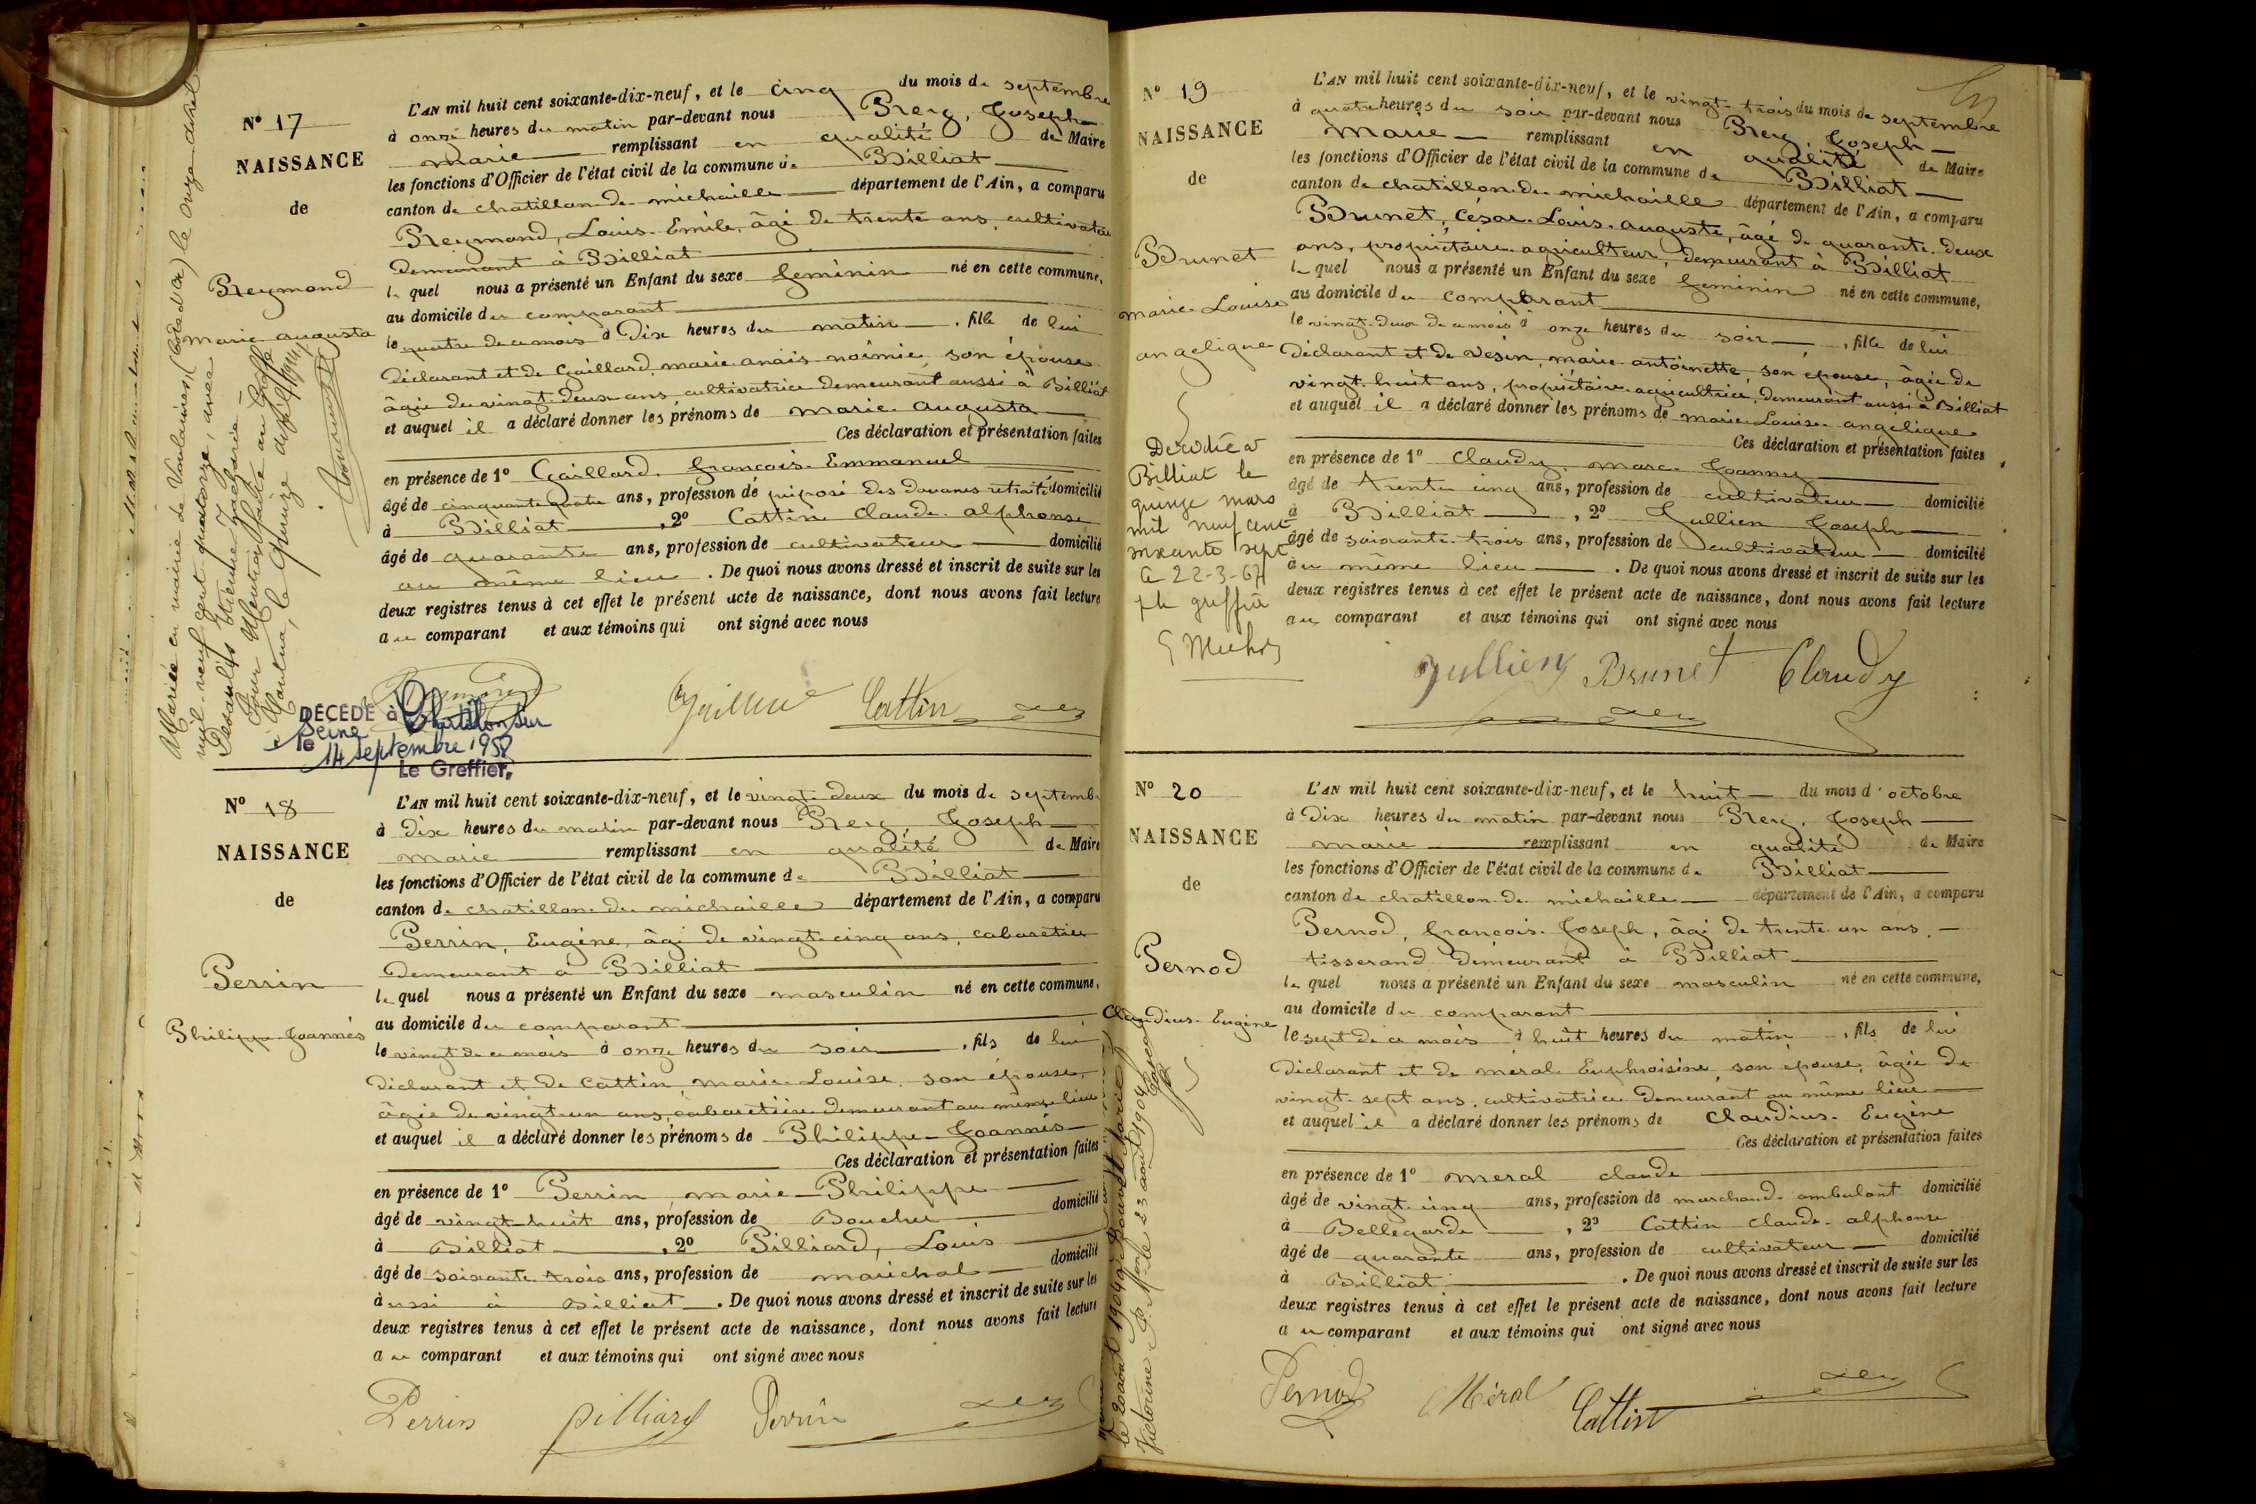 N° 17
NAISSANCE
de
Reymond
marie augusta
L'AN mil huit cent soixante-dix-neuf, et le cinq du mois de septembre
à onze heures du matin par-devant nous Prery, Joseph
marie remplissant en qualité de Maire
les fonctions d'Officier de l'état civil de la commune de Billiat
canton de chatillon de michaille département de l'Ain, a comparu
Reymond, Louis Emile, âgé de trente ans, cultivateur
demeurant à Billiat
lequel nous a présenté un Enfant du sexe féminin né en cette commune,
au domicile du comparant
le quatre de ce mois à Dix heures du matin, fille de lui
déclarant et de Gaillard marie anaïs noîmie, son épouse
âgée de vingt deux ans, cultivatrice demeurant aussi à Billiat
et auquel il a déclaré donner les prénoms de marie augusta
Ces déclaration et présentation faites
en présence de 1° Gaillard françois Emmanuel
âgé de cinquante quatre ans, profession de préposé des douanes retraité domicilié
à Billiat, 2° Cattin claude alphonse
âgé de quarante ans, profession de cultivateur domicilié
au même lieu. De quoi nous avons dressé et inscrit de suite sur les
deux registres tenus à cet effet le présent acte de naissance, dont nous avons fait lecture
au comparant et aux témoins qui ont signé avec nous
Reymond Gaillard Cattin
Mariée en mairie de le onze avril
mil-neuf cent quatorze, avec
Desaulis Etienne Zacharie
Pour Mention faite au Greffe
à Nantua, le quinze avril 1914
DÉCÉDÉ à Chatillon sur
Seine
le 14 septembre 1958
Le Greffier,
N° 18
NAISSANCE
de
Perrin
Philippe Joannès
L'AN mil huit cent soixante-dix-neuf, et le vingt deux du mois de septembre
à Dix heures du matin par-devant nous Prery Joseph
marie remplissant en qualité de Maire
les fonctions d'Officier de l'état civil de la commune de Billiat
canton de chatillon de michaille département de l'Ain, a comparu
Perrin, Eugène, âgé de vingt cinq ans, cabaretier
demeurant à Billiat
lequel nous a présenté un Enfant du sexe masculin né en cette commune,
au domicile du comparant
le vingt de ce mois à onze heures du soir, fils de lui
déclarant et de Cattin, marie Louise, son épouse,
âgée de vingt un ans, cabaretière demeurant au même lieu
et auquel il a déclaré donner les prénoms de Philippe Joannès
Ces déclaration et présentation faites
en présence de 1° Perrin, marie Philippe
âgé de vingt huit ans, profession de Boucher domicilié
à Billiat, 2° Pilliard, Louis
âgé de soixante trois ans, profession de maréchal domicilié
aussi à Billiat. De quoi nous avons dressé et inscrit de suite sur les
deux registres tenus à cet effet le présent acte de naissance, dont nous avons fait lecture
au comparant et aux témoins qui ont signé avec nous
Perrin Pilliard Perrin
N° 19
NAISSANCE
de
Brunet
marie Louise
angelique
Décédée à
Billiat le
quinze mars
mil neuf cent
soixante sept
le 22-3-67
p le greffier
L'AN mil huit cent soixante-dix-neuf, et le vingt-trois du mois de septembre
à quatre heures du soir par-devant nous Prery, Joseph
marie remplissant en qualité de Maire
les fonctions d'Officier de l'état civil de la commune de Billiat
canton de chatillon de michaille département de l'Ain, a comparu
Brunet, César Louis auguste, âgé de quarante deux
ans, propriétaire agriculteur, demeurant à Billiat
lequel nous a présenté un Enfant du sexe féminin né en cette commune,
au domicile du comparant
le vingt-deux de ce mois à onze heures du soir, fille de lui
déclarant et de Vesin, marie antoinette, son épouse, âgée de
vingt huit ans, propriétaire agricultrice, demeurant aussi à Billiat
et auquel il a déclaré donner les prénoms de marie Louise angelique
Ces déclaration et présentation faites
en présence de 1° Claudy marc Joanny
âgé de trente cinq ans, profession de cultivateur domicilié
à Billiat, 2° Jullien Joseph
âgé de soixante trois ans, profession de cultivateur domicilié
au même lieu. De quoi nous avons dressé et inscrit de suite sur les
deux registres tenus à cet effet le présent acte de naissance, dont nous avons fait lecture
au comparant et aux témoins qui ont signé avec nous
Jullien Brunet Claudy
N° 20
NAISSANCE
de
Pernod
Claudius Eugène
L'AN mil huit cent soixante-dix-neuf, et le huit du mois d'octobre
à Dix heures du matin par-devant nous Prery, Joseph
marie remplissant en qualité de Maire
les fonctions d'Officier de l'état civil de la commune de Billiat
canton de chatillon de michaille département de l'Ain, a comparu
Pernod, françois Joseph, âgé de trente un ans,
tisserand demeurant à Billiat
lequel nous a présenté un Enfant du sexe masculin né en cette commune,
au domicile du comparant
le sept de ce mois à huit heures du matin, fils de lui
déclarant et de méral Euphroisine, son épouse, âgée de
vingt sept ans, cultivatrice demeurant au même lieu
et auquel il a déclaré donner les prénoms de Claudius Eugène
Ces déclaration et présentation faites
en présence de 1° meral claude
âgé de vingt cinq ans, profession de marchand ambulant domicilié
à Bellegarde, 2° Cattin claude alphonse
âgé de quarante ans, profession de cultivateur domicilié
à Billiat. De quoi nous avons dressé et inscrit de suite sur les
deux registres tenus à cet effet le présent acte de naissance, dont nous avons fait lecture
au comparant et aux témoins qui ont signé avec nous
Pernod Méral Cattin
le 20 août 1904 Marie
Victorine 23 août 1904